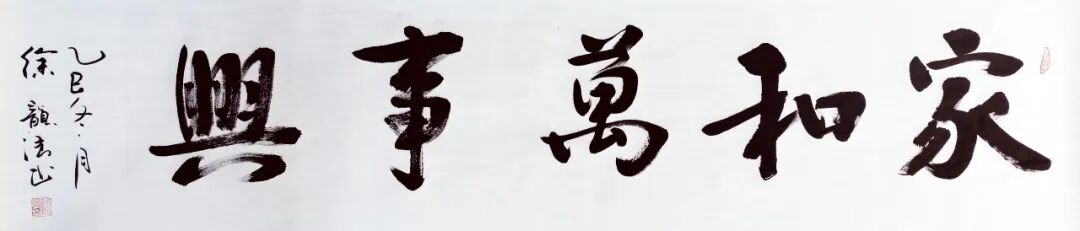 家和萬事興
乙巳冬月
徐韻法书